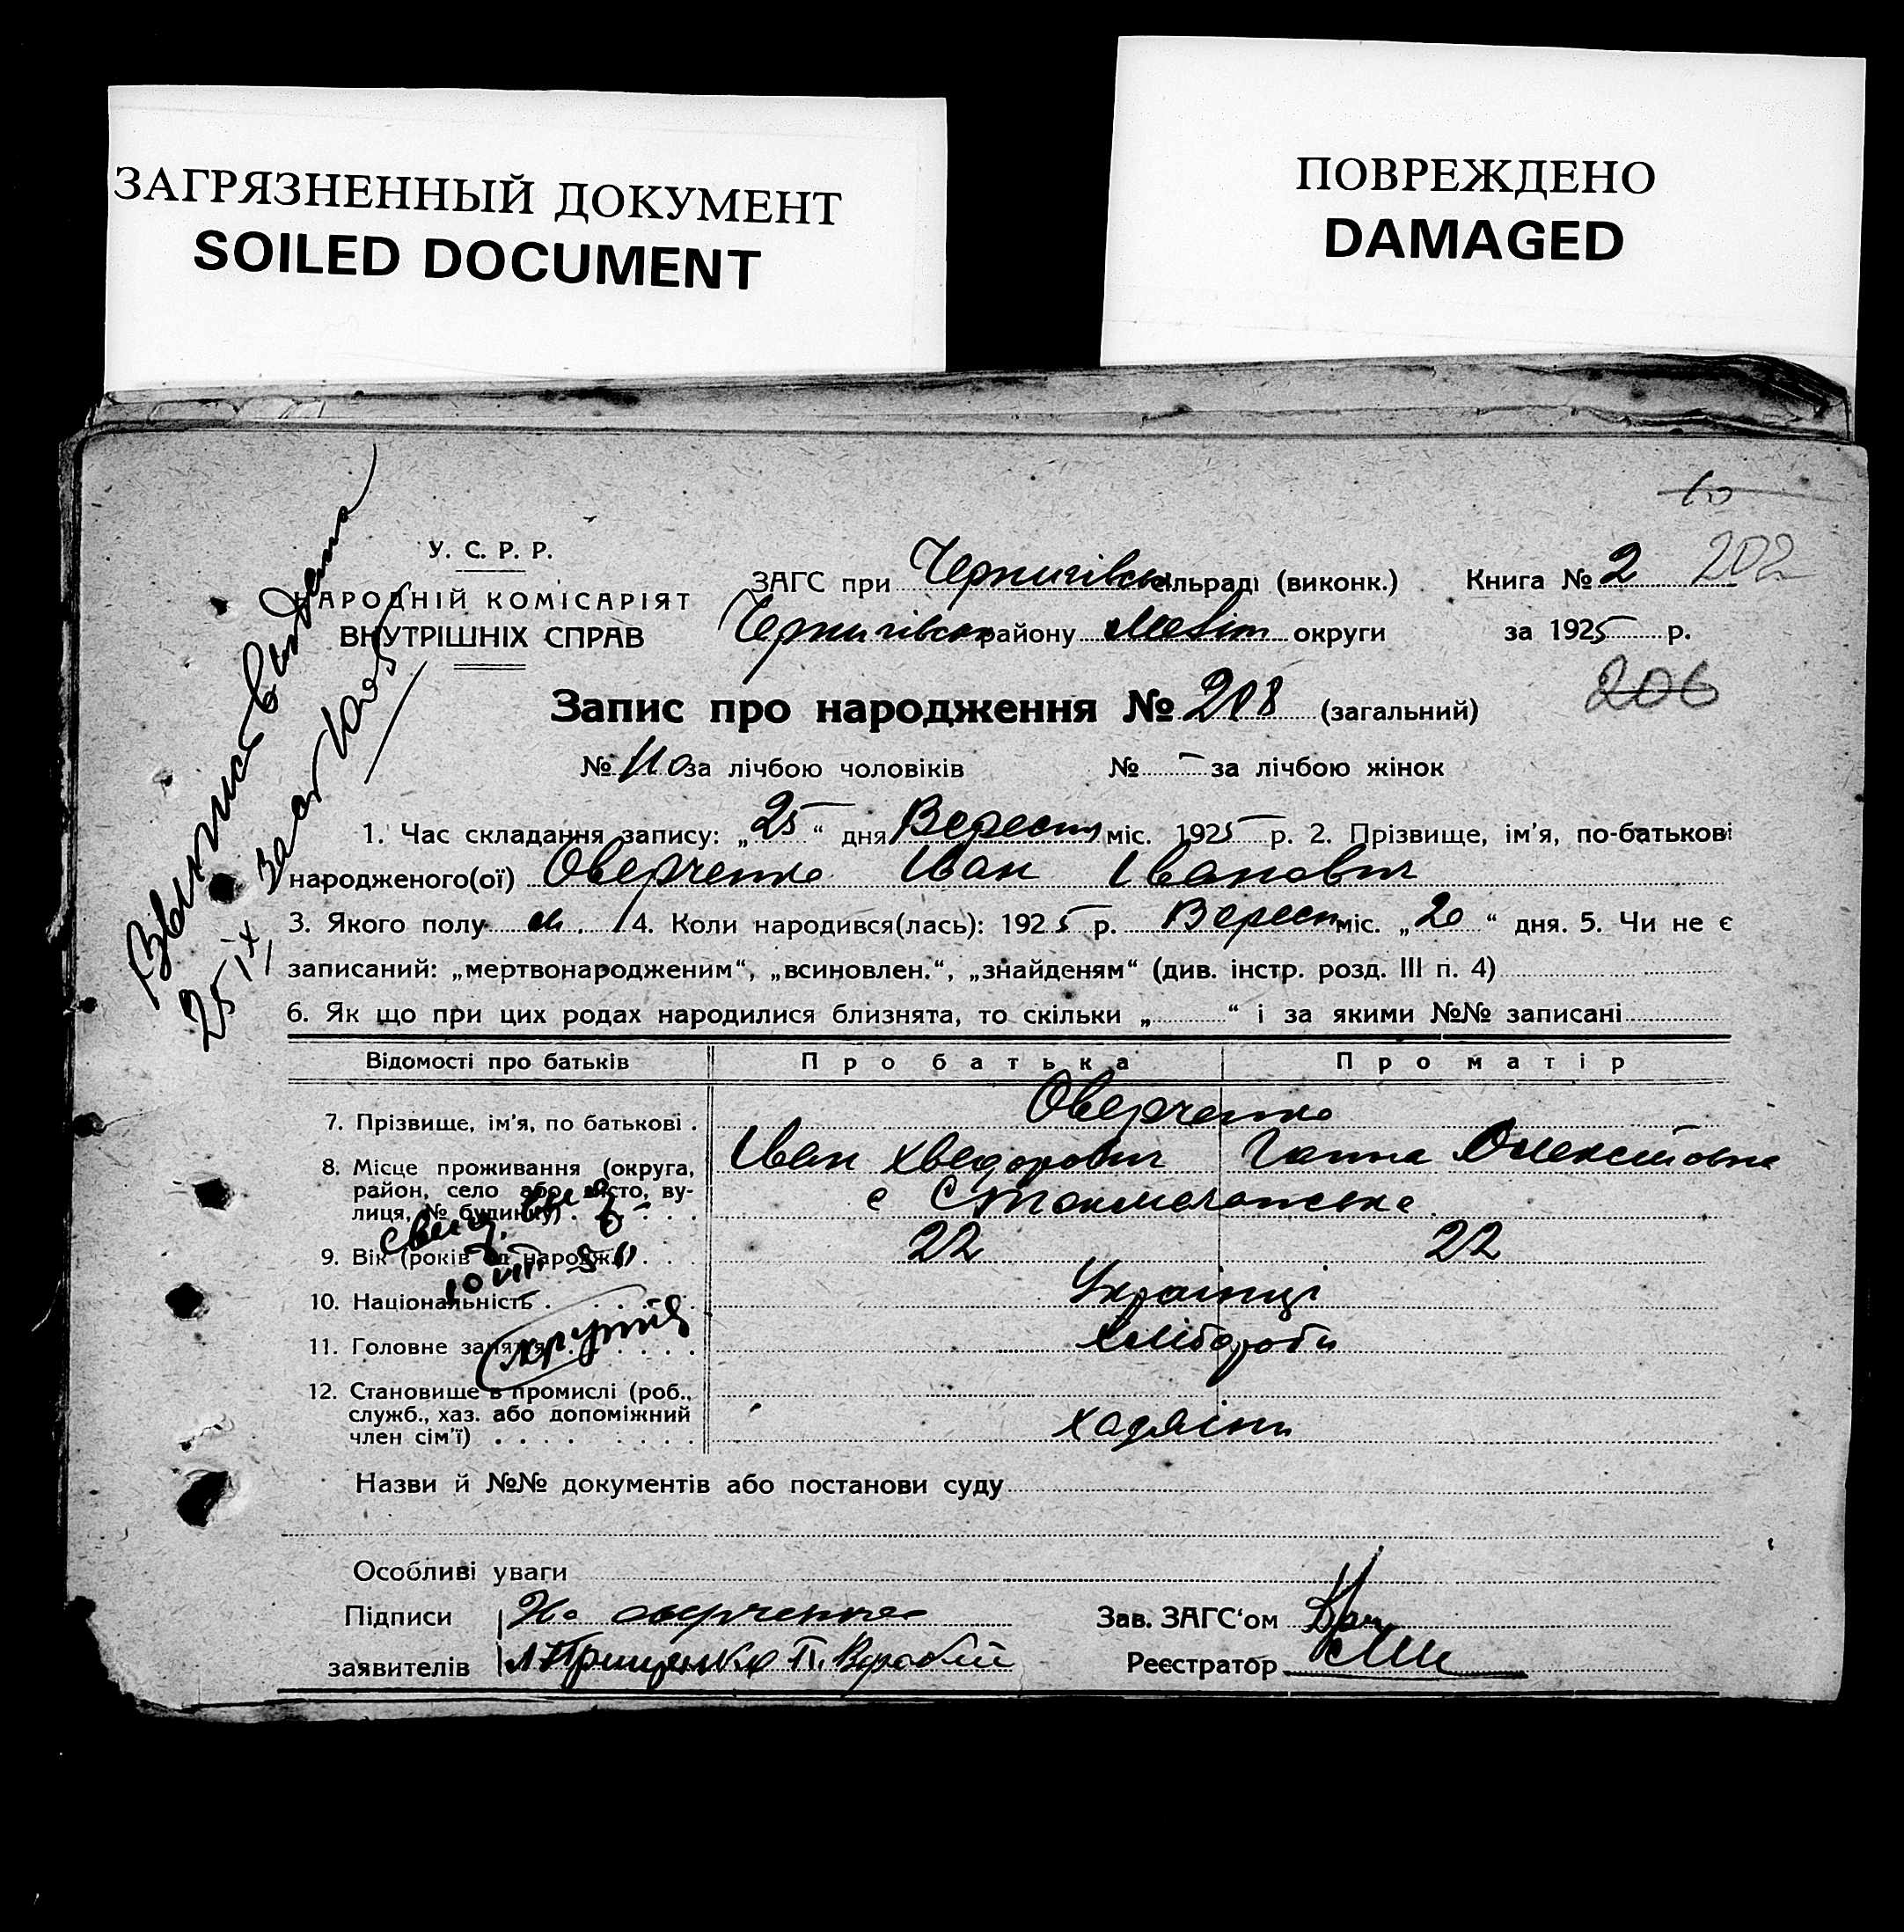 ЗАГРЯЗНЕННЫЙ ДОКУМЕНТ
SOILED DOCUMENT
ПОВРЕЖДЕНО
DAMAGED
10
У. С. Р. Р.
НАРОДНІЙ КОМІСАРІЯТ
ВНУТРІШНІХ СПРАВ
ЗАГС при Чернигівськ сільраді (виконк.) Книга № 2 202
Чернигівськ району Меліт округи за 1925 р.
206
Запис про народження № 208 (загальний)
№ 110 за лічбою чоловіків № - за лічбою жінок
1. Час складання запису: „25“ дня Вересня міс. 1925 р. 2. Прізвище, ім'я, по-батькові
народженого(ої) Оверченко Іван Іванович
3. Якого полу м. 4. Коли народився(лась): 1925 р. Вересн міс. „20“ дня. 5. Чи не є
записаний: „мертвонародженим“, „всиновлен.“, „знайденям“ (див. інстр. розд. III п. 4)
6. Як що при цих родах народилися близнята, то скільки „ “ і за якими №№ записані
Відомості про батьків Про батька Про матір
7. Прізвище, ім'я, по батькові . Оверченко
Іван Хведорович Ганна Олексіївна
8. Місце проживання (округа,
район, село або місто, ву-
лиця, № будинку) с Стокмачанська
9. Вік (років від народж.) 22 22
10. Національність Українці
11. Головне заняття Хлібороби
12. Становище в промислі (роб.,
служб., хаз. або допоміжний
член сім'ї) хазяіни
Назви й №№ документів або постанови суду
Особливі уваги
Підписи Оверченко Зав. ЗАГС‘ом
заявителів Грищенко П. Воробій Реєстратор
Выпись выдана
25 IX
10 VIII